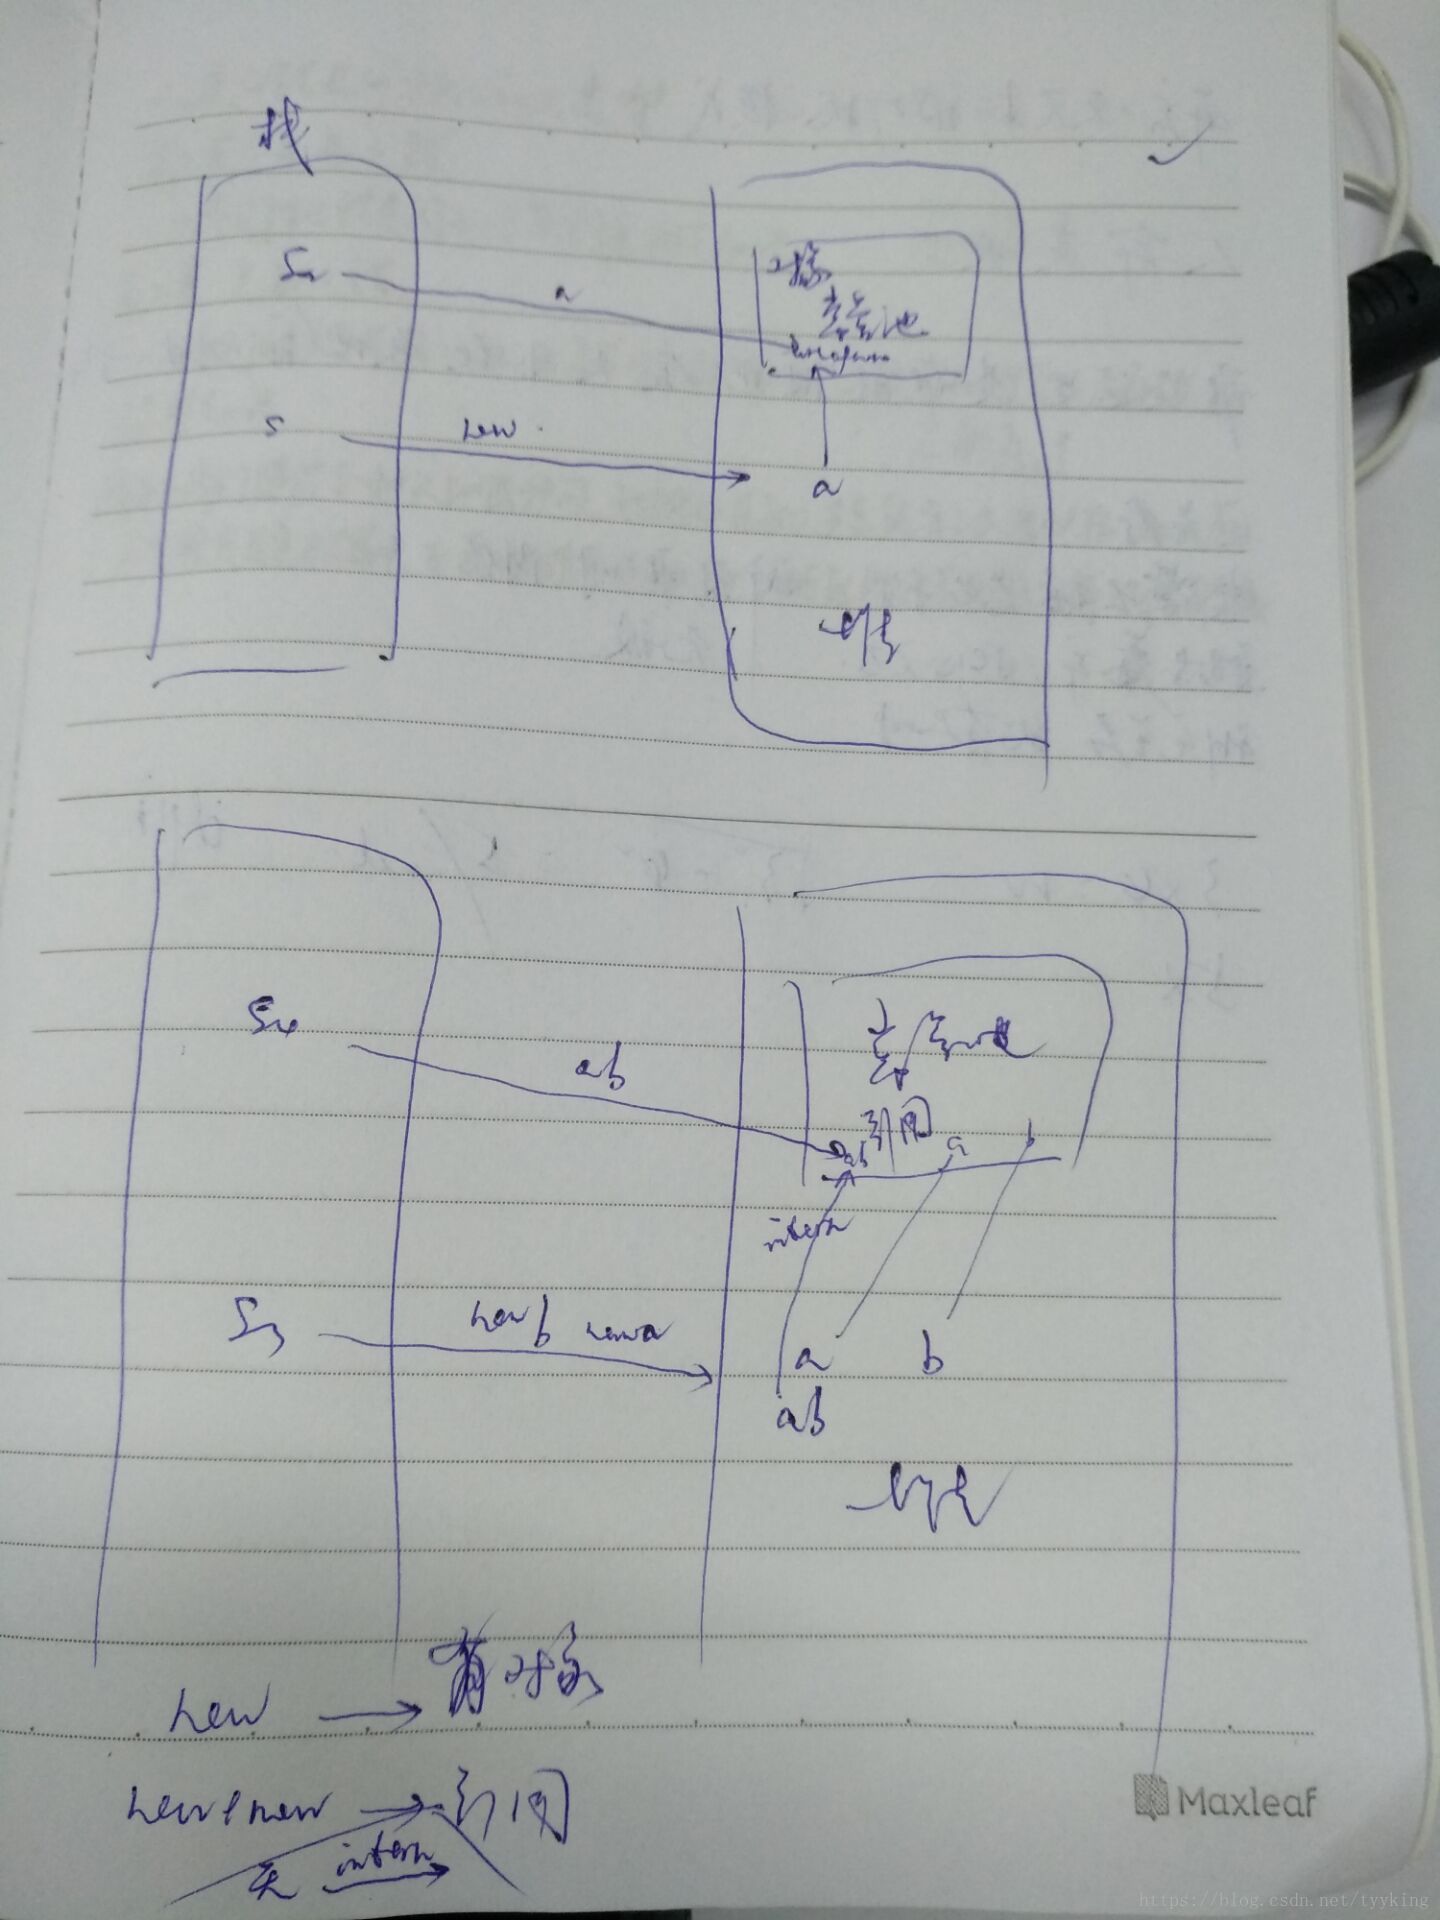 栈
S2
a
对象
常量池
S
new
a
堆
S4
ab
常量池
引用
ab
a
b
intern
S3
new b new a
a
b
ab
堆
new → 有对象
new+new → 引用
无 intern
Maxleaf
https://blog.csdn.net/tyyking